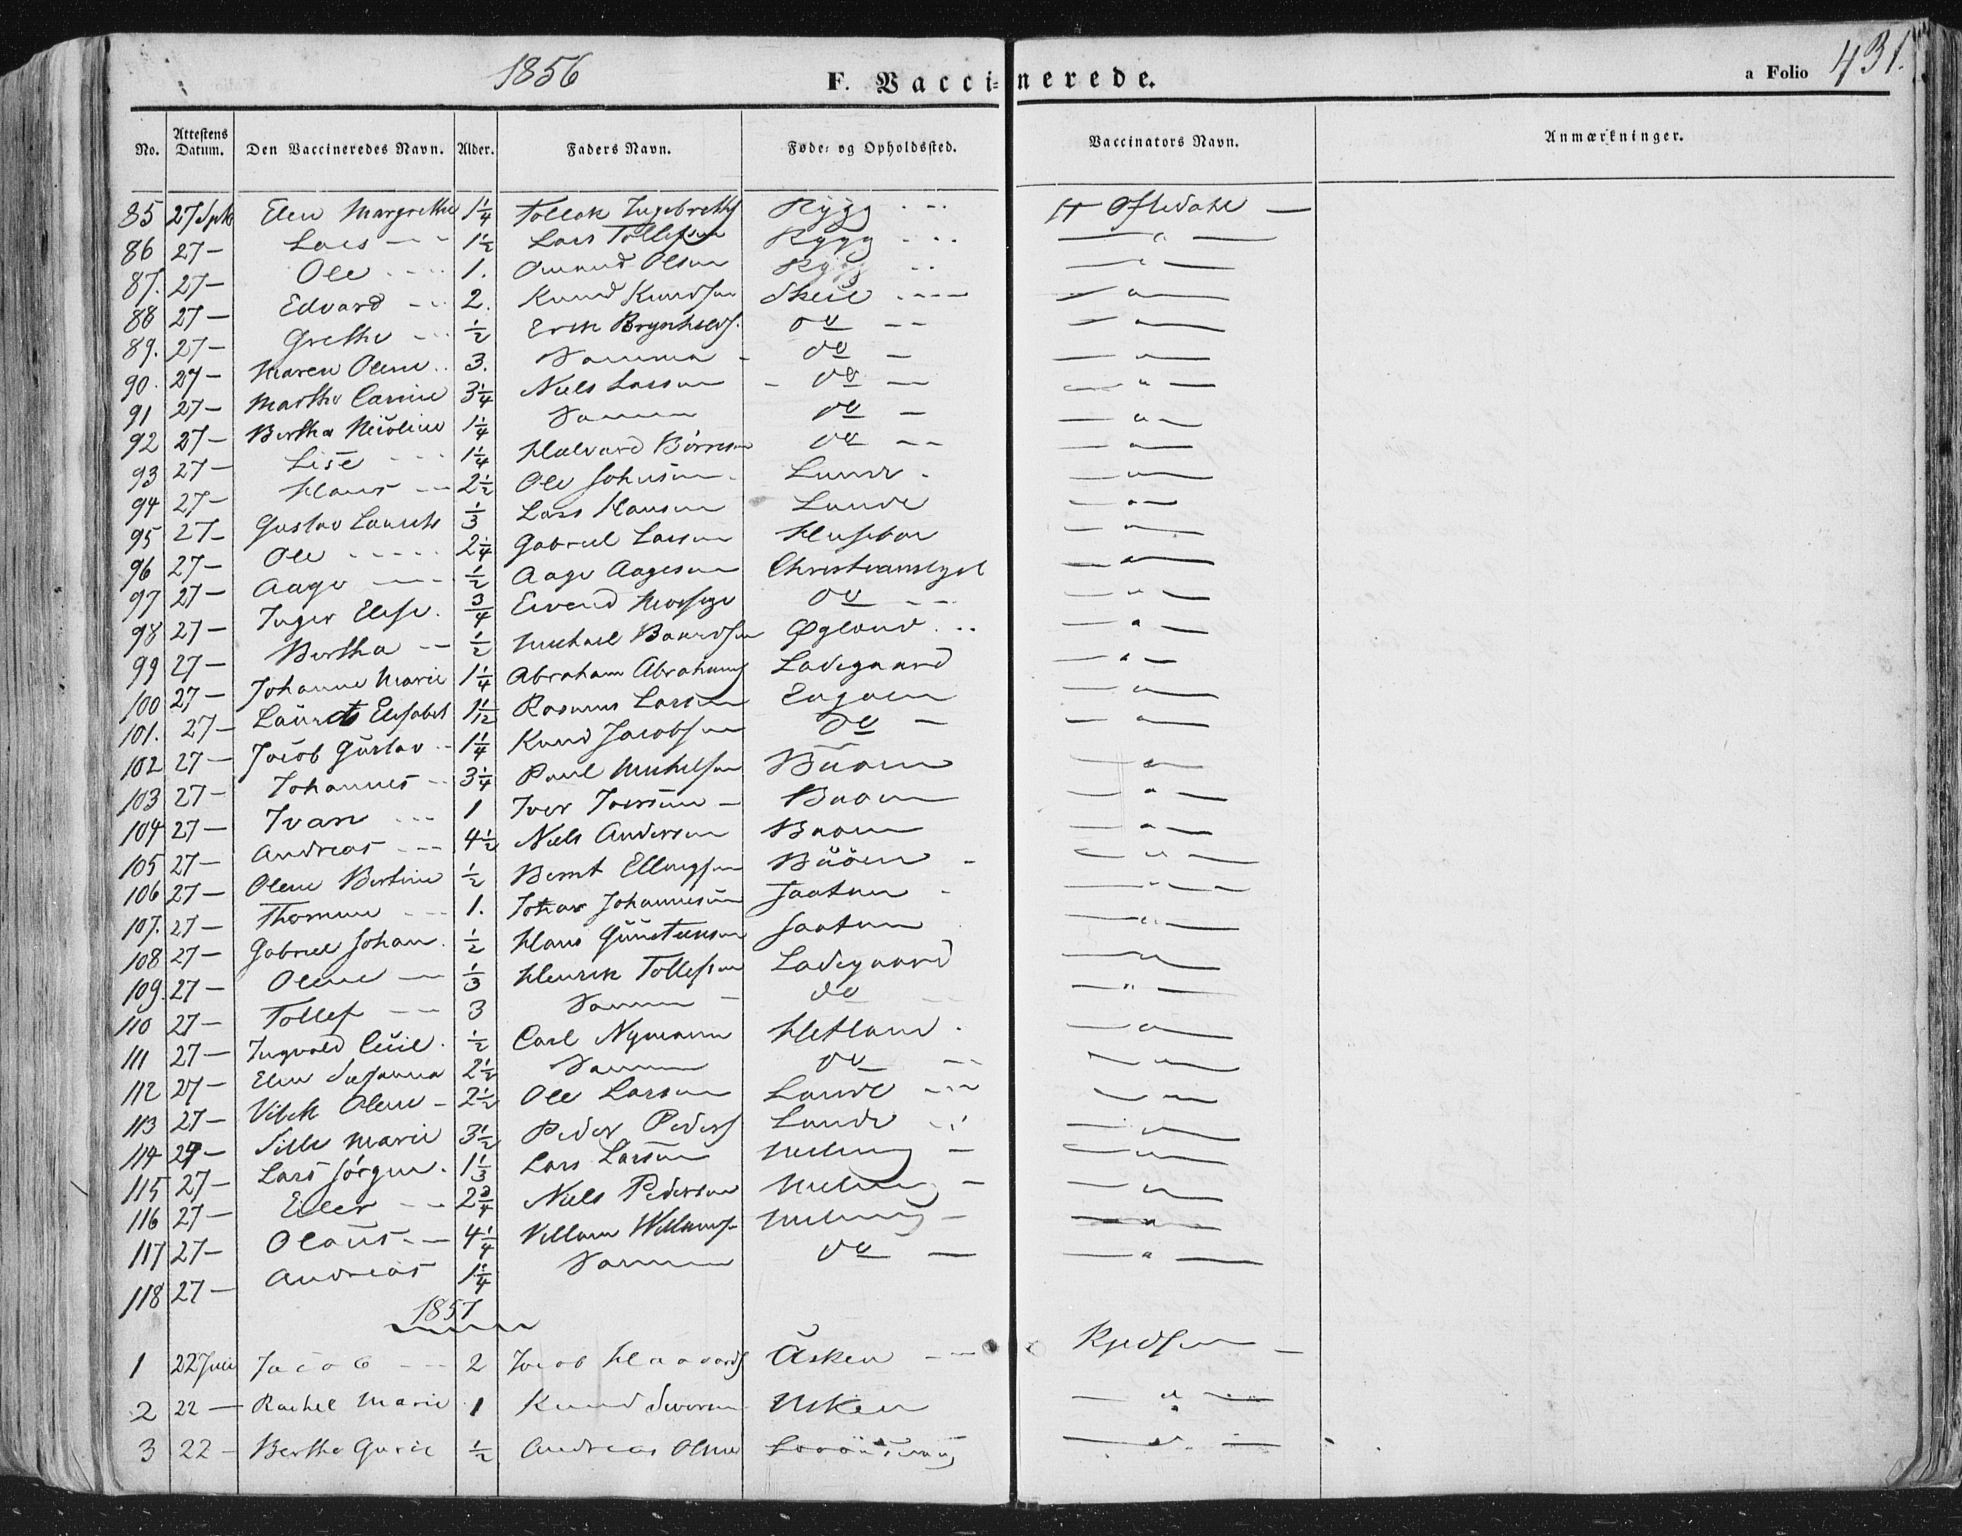 1856 F. Vaccinerede. a Folio 431.
No. Attestens Datum. Den Vaccineredes Navn. Alder. Faders Navn. Føde- og Opholdssted. Vaccinators Navn. Anmærkninger.
85 27 Sept Elen Margrethe 1 1/4 Tollak Ingebreths Rygg
86 27 – Lars 1 1/2 Lars Tollefsen Rygg "
87. 27 – Ole 1. Amund Olsen Rygg "
88 27 – Edvard 2. Knud Knudsen Skeie "
89. 27 – Grethe 1/2 Erik do "
90. 27 – Maren Olene 3. Samme do "
91 27 – Marthe 3 1/4 Niels Larsen do "
92 27 – Bertha Nicoline 1 1/4 Samme do "
93 27 – Lise 1 1/4 Halvard Børresen do "
94 27 – Hans 2 1/2 Ole Johnsen Lunde "
95 27 – Gustav Laurits 1/3 Lars Hansen Lunde "
96 27 – Ole 2 1/4 Gabriel Larsen Husebøe "
97 27 – Aage 1/2 Aage Aagesen Christianslyst "
98 27 – Inger Elise 3/4 Eivend do "
99 27 – Bertha 1/2 Michael Baardsen Øglænd "
100 27 – Johanne Marie 1 1/4 Abraham Abrahams Ladegaard "
101. 27 – Laurits Elisabet 1 1/12 Rasmus Larsen Engøen "
102 27 – Jacob Gustav 1 1/4 Knud Jacobsen do "
103 27 – Johannes 3 1/4 Paul Michelsen Buøen "
104 27 – Ivar 1 Iver Iversen Buøen "
105 27 – Andreas 4 1/2 Niels Andersen Buøen "
106 27 – Olene Bertine 1/2 Bernt Ellingsen Buøen "
107. 27 – Thomine 1. Johannesen Jaatun "
108 27 – Gabriel Johan 1/2 Hans Jaatun "
109. 27 – Olene 1/3 Henrik Tollefsen Ladegaard "
110 27 – Tollef 3 Samme do "
111 27 – Ingvald 1/2 Carl Nymann Hetland "
112 27 – Elen Susanna 2 1/2 Samme do "
113 27 – Olene 2 1/2 Ole Larsen Lunde "
114 27 – Sille Marie 3 1/2 Peder Peders Lunde "
115 27 – Lars Jørgen 1 1/3 Lars Larsen Meling "
116 27 – Eiler 2 3/4 Niels Pedersen Meling "
117 27 – Olaus 4 1/4 Villum Willumsen Meling "
118 27 – Andreas 1 1/4 Samme do "
1857
1 22 Juli Jacob 2 Jacob Haavards Åsken
2 22 – Rachel Marie 1 Knud Siversen Usken "
3 22 – Bertha Gurie 1/2 Andreas Olsen "